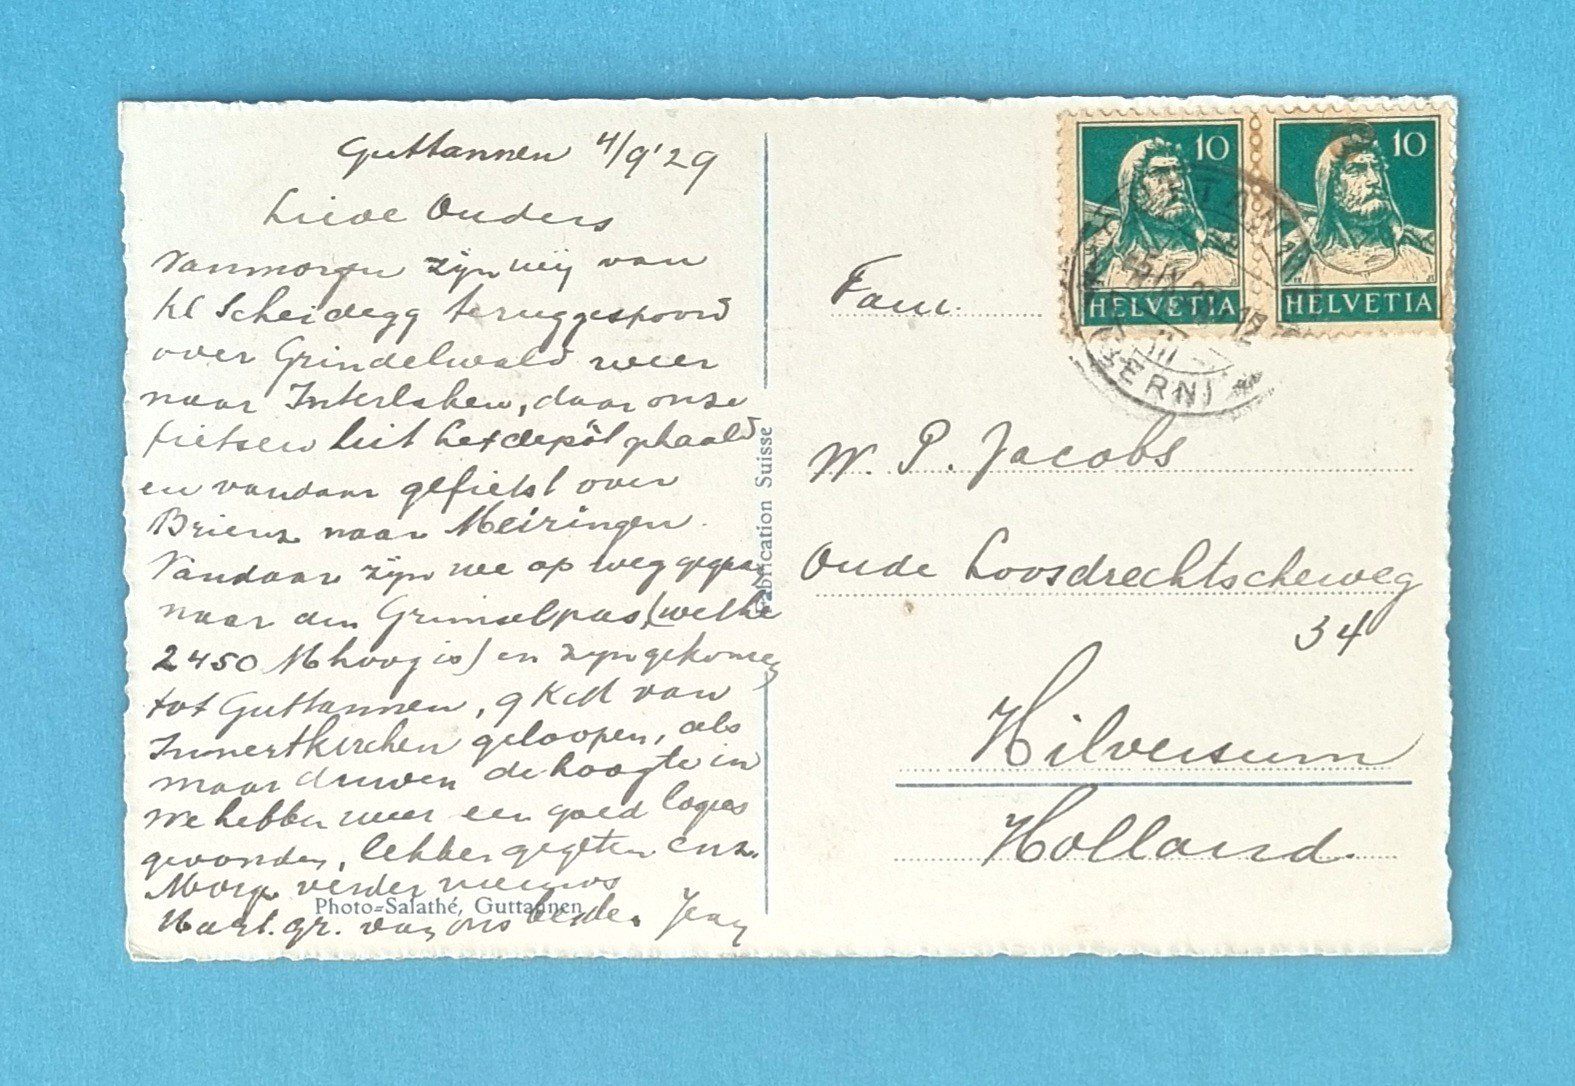 Guttannen 4/9'29
Lieve Ouders
Vanmorgen zijn wij van
kl Scheidegg teruggespoord
over Grindelwald weer
naar Interlaken, daar onze
fietsen uit het depôt gehaald
en vandaar gefietst over
Brienz naar Meiringen.
Vandaar zijn we op weg gegaan
naar den Grimselpas (welke
2450 M hoog is) en zijn gekomen
tot Guttannen, 9 KM van
Innertkirchen geloopen, als
maar duwen de hoogte in
We hebben weer een goed logies
gevonden, lekker gegeten enz.
Morg. verder nieuws
Hart. gr. van ons beide.
Photo=Salathé, Guttannen
Fabrication Suisse
10
HELVETIA
10
HELVETIA
GUTTANNEN
(BERN)
Fam.
W. P. Jacobs
Oude Loosdrechtscheweg
34
Hilversum
Holland.